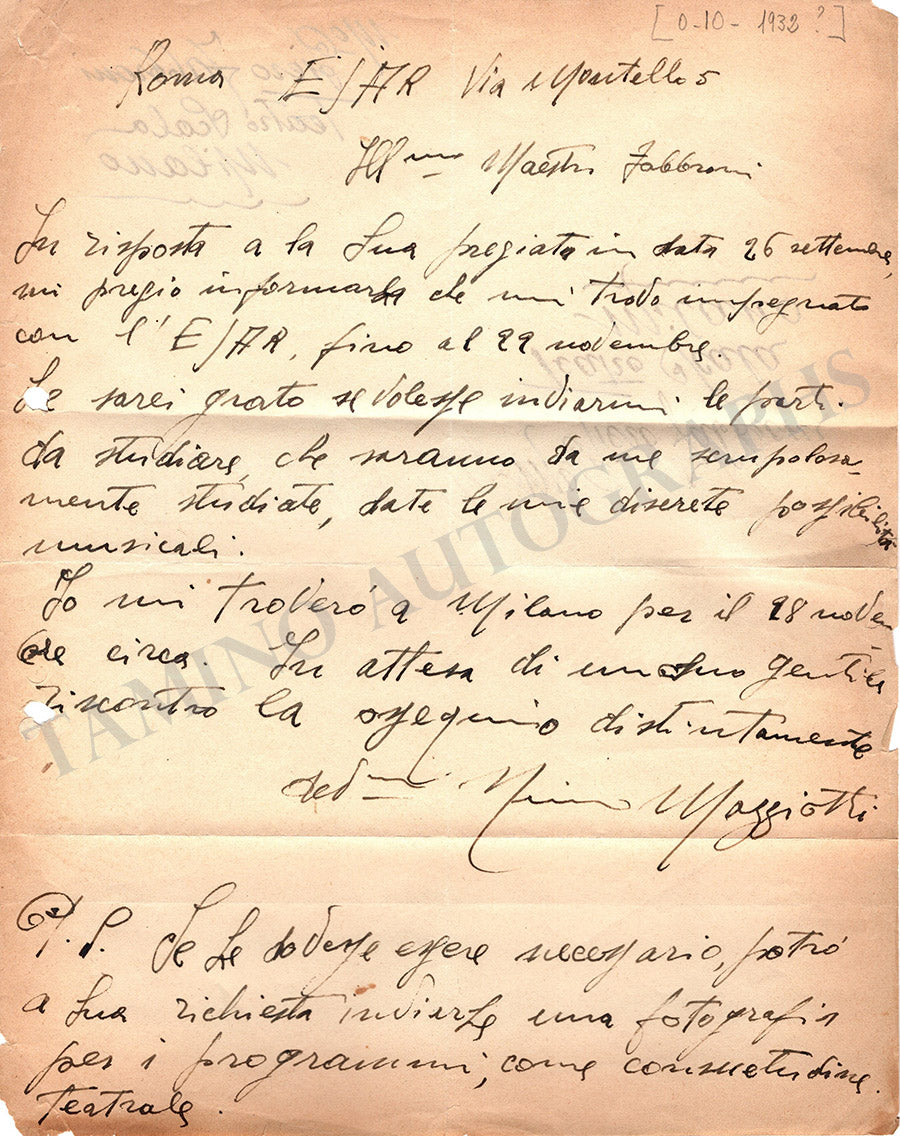 [0-10-1932?]
Roma EJAR Via Montello 5
Ill^mo Maestro Fabbroni
In risposta a la Sua pregiata in data 26 settembre,
mi pregio informarla che mi trovo impegnato
con l'EJAR, fino al 22 novembre.
Le sarei grato se volesse inviarmi le parti
da studiare, che saranno da me scrupolosa-
mente studiate, date le mie discrete possibilità
musicali.
Io mi troveró a Milano per il 28 novem
bre circa. In attesa di un Suo gentile
riscontro la ossequio distintamente
dev^mo Nino Mazziotti
P.S. Se Le dovesse essere necessario, potró
a Sua richiesta inviarLe una fotografia
per i programmi, come consuetudine
teatrale.
TAMINO AUTOGRAPHS